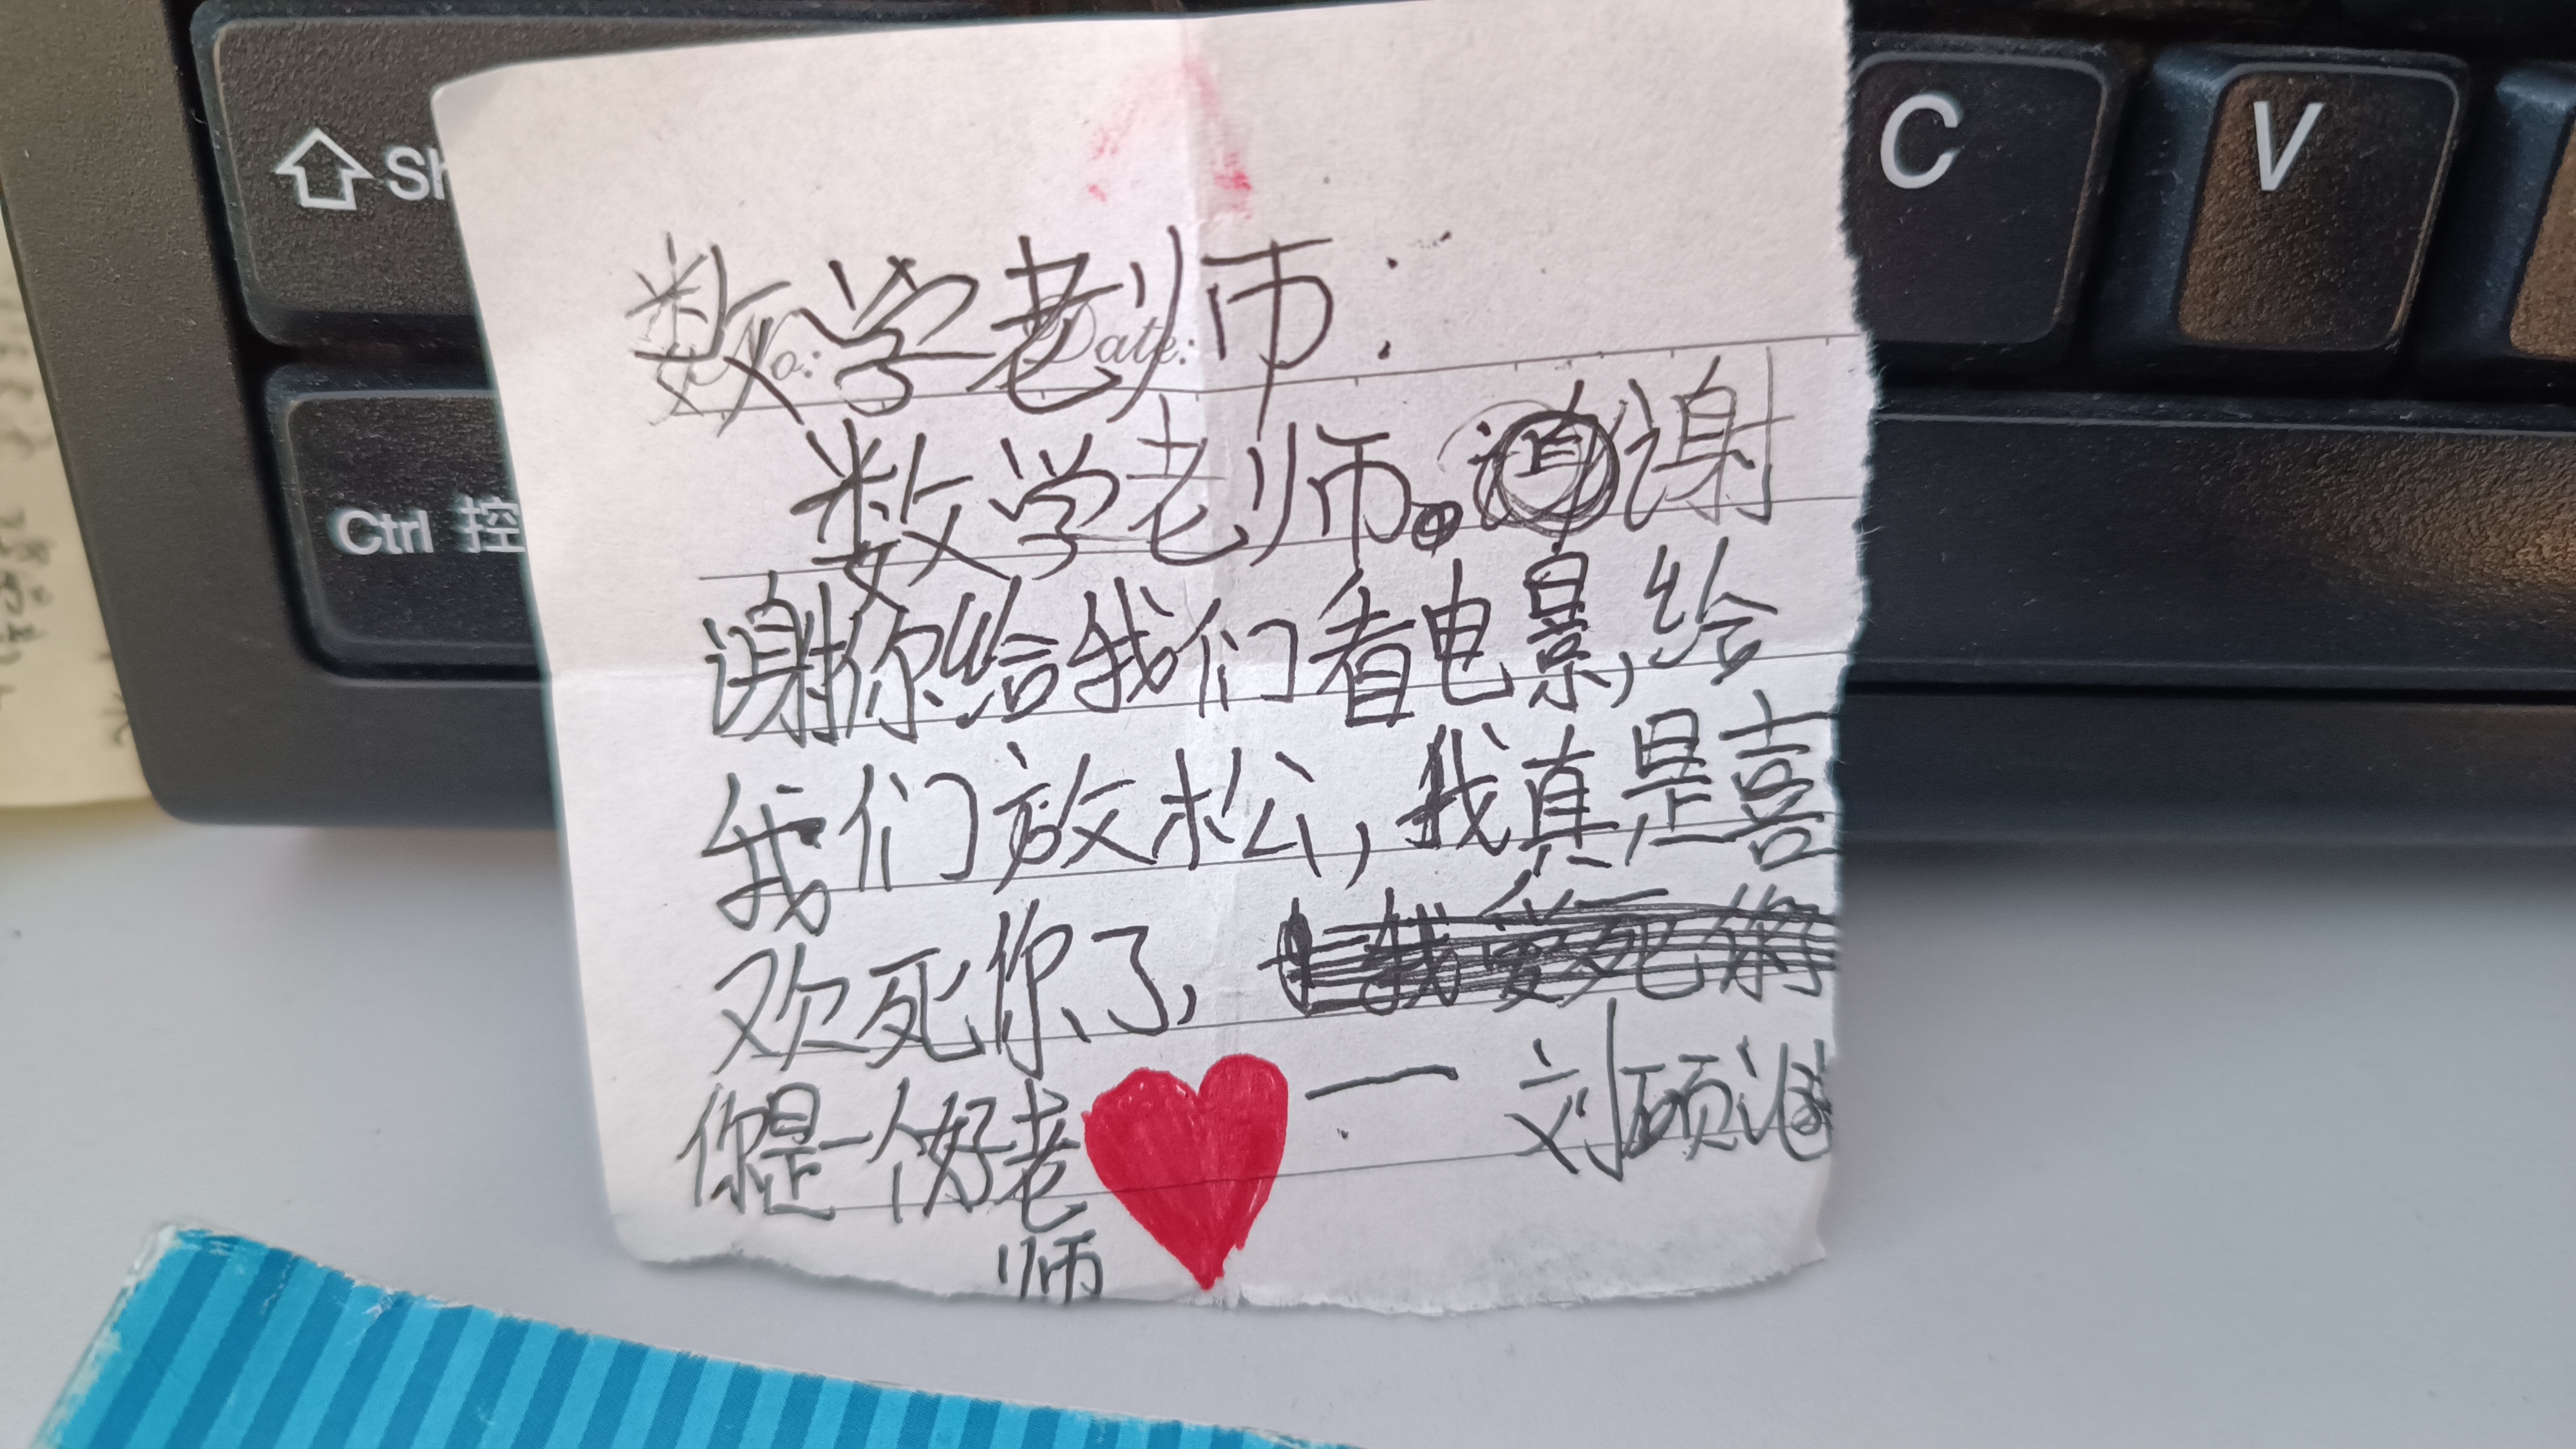 Sh
C
V
Ctrl 控
No: Date:
数学老师：
数学老师。谢
谢你给我们看电影,给
我们放松,我真是喜
欢死你了,
我爱死你
你是一个好老
师
— 刘硕